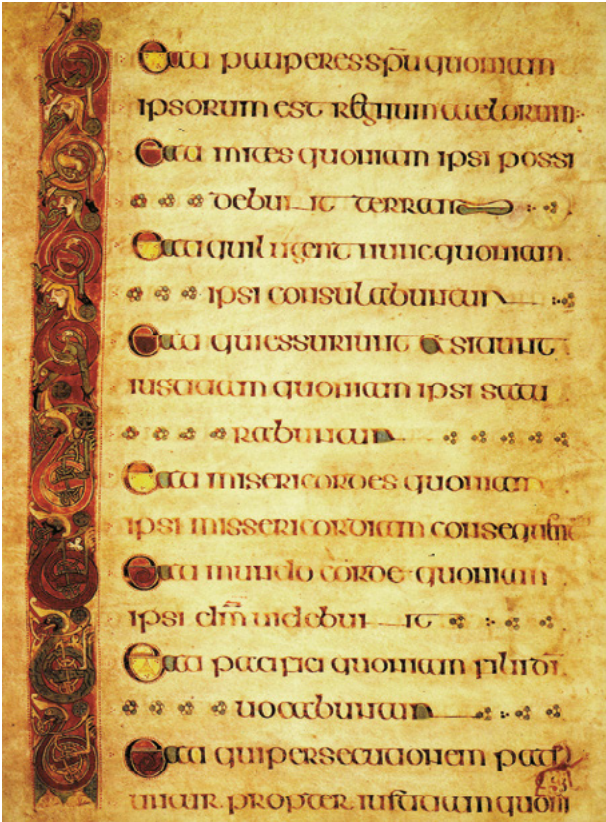 Beati pauperes spū quoniam
ipsorum est regnum caelorum
Beati mites quoniam ipsi possi
debunt terram
Beati qui lugent nunc quoniam
ipsi consulabuntur
Beati qui essuriunt et sitiunt
iustitiam quoniam ipsi satu
rabuntur
Beati misericordes quoniam
ipsi missericordiam
Beati mundo corde quoniam
ipsi dm̄ uidebunt
Beati pacifici quoniam filii dī
uocabuntur
Beati qui persecutionem pati
untur propter iustitiam quoni